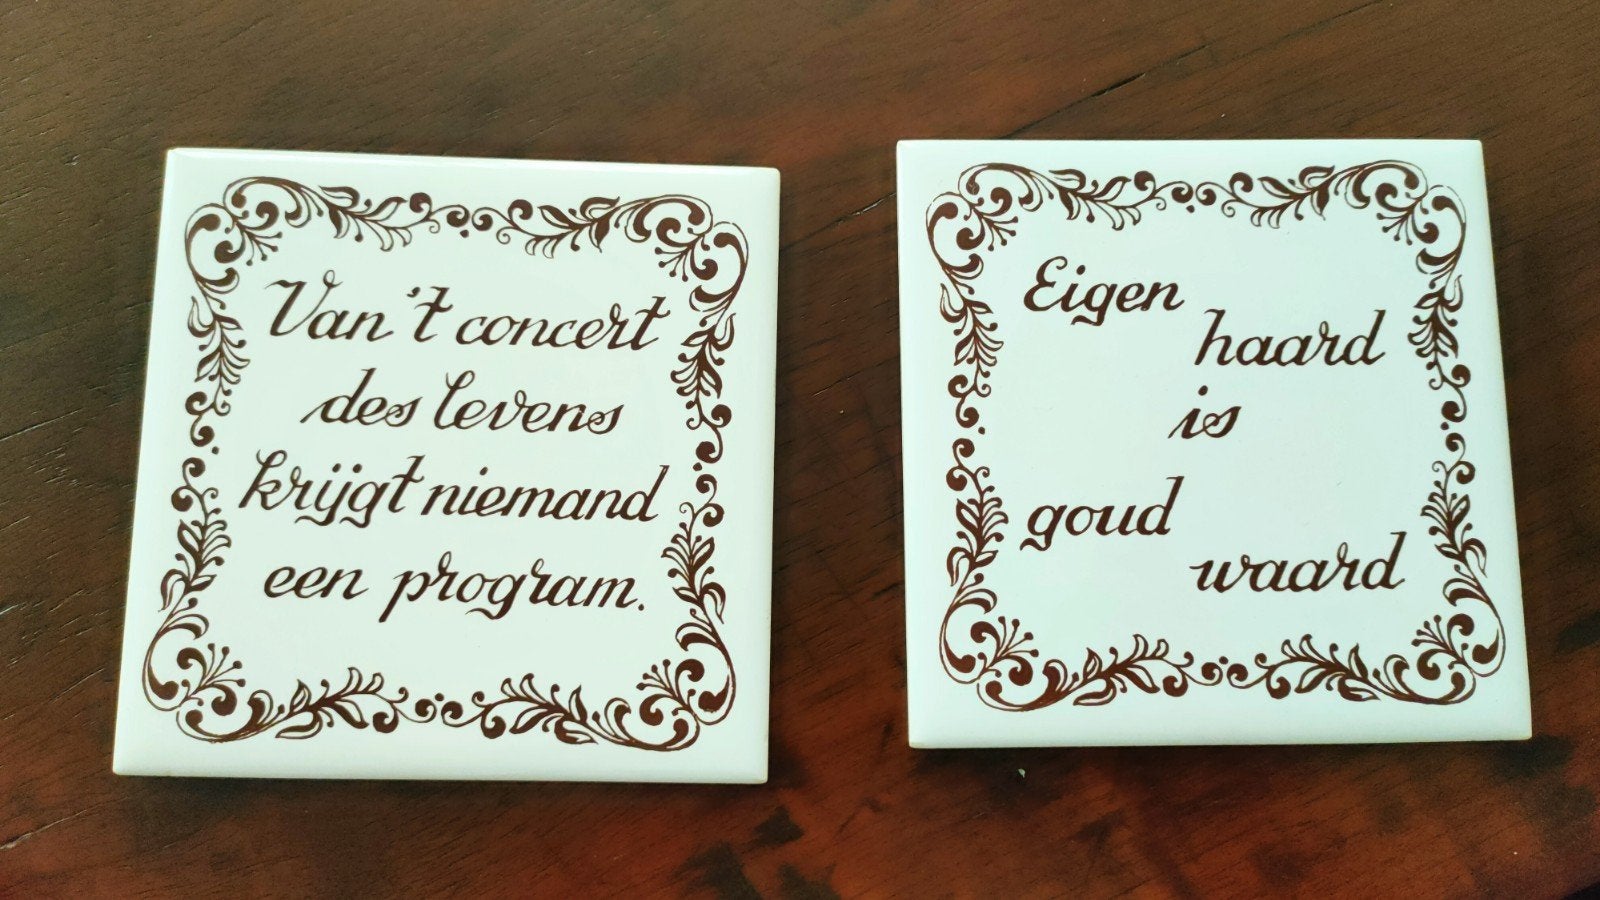 Van 't concert
des levens
krijgt niemand
een program.
Eigen
haard
is
goud
waard